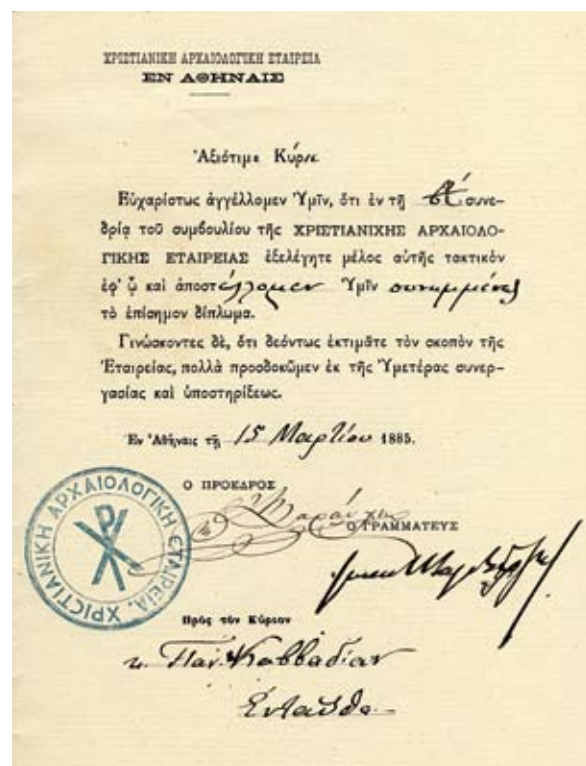 ΧΡΙΣΤΙΑΝΙΚΗ ΑΡΧΑΙΟΛΟΓΙΚΗ ΕΤΑΙΡΕΙΑ
ΕΝ ΑΘΗΝΑΙΣ
Ἀξιότιμε Κύριε
Εὐχαρίστως ἀγγέλλομεν Ὑμῖν, ὅτι ἐν τῇ συνε-
δρίᾳ τοῦ συμβουλίου τῆς ΧΡΙΣΤΙΑΝΙΚΗΣ ΑΡΧΑΙΟΛΟ-
ΓΙΚΗΣ ΕΤΑΙΡΕΙΑΣ ἐξελέγητε μέλος αὐτῆς τακτικὸν
ἐφ' ᾧ καὶ ἀποστέλλομεν Ὑμῖν συνημμένως
τὸ ἐπίσημον δίπλωμα.
Γινώσκοντες δέ, ὅτι δεόντως ἐκτιμᾶτε τὸν σκοπὸν τῆς
Ἑταιρείας, πολλὰ προσδοκῶμεν ἐκ τῆς Ὑμετέρας συνερ-
γασίας καὶ ὑποστηρίξεως.
Ἐν Ἀθήναις τῇ 15 Μαρτίου 1885.
Ο ΠΡΟΕΔΡΟΣ
Ο ΓΡΑΜΜΑΤΕΥΣ
ΧΡΙCΤΙΑΝΙΚΗ ΑΡΧΑΙΟΛΟΓΙΚΗ ΕΤΑΙΡΕΙΑ
Πρὸς τὸν Κύριον
κ. Παν. Καββαδίαν
Ἐνταῦθα